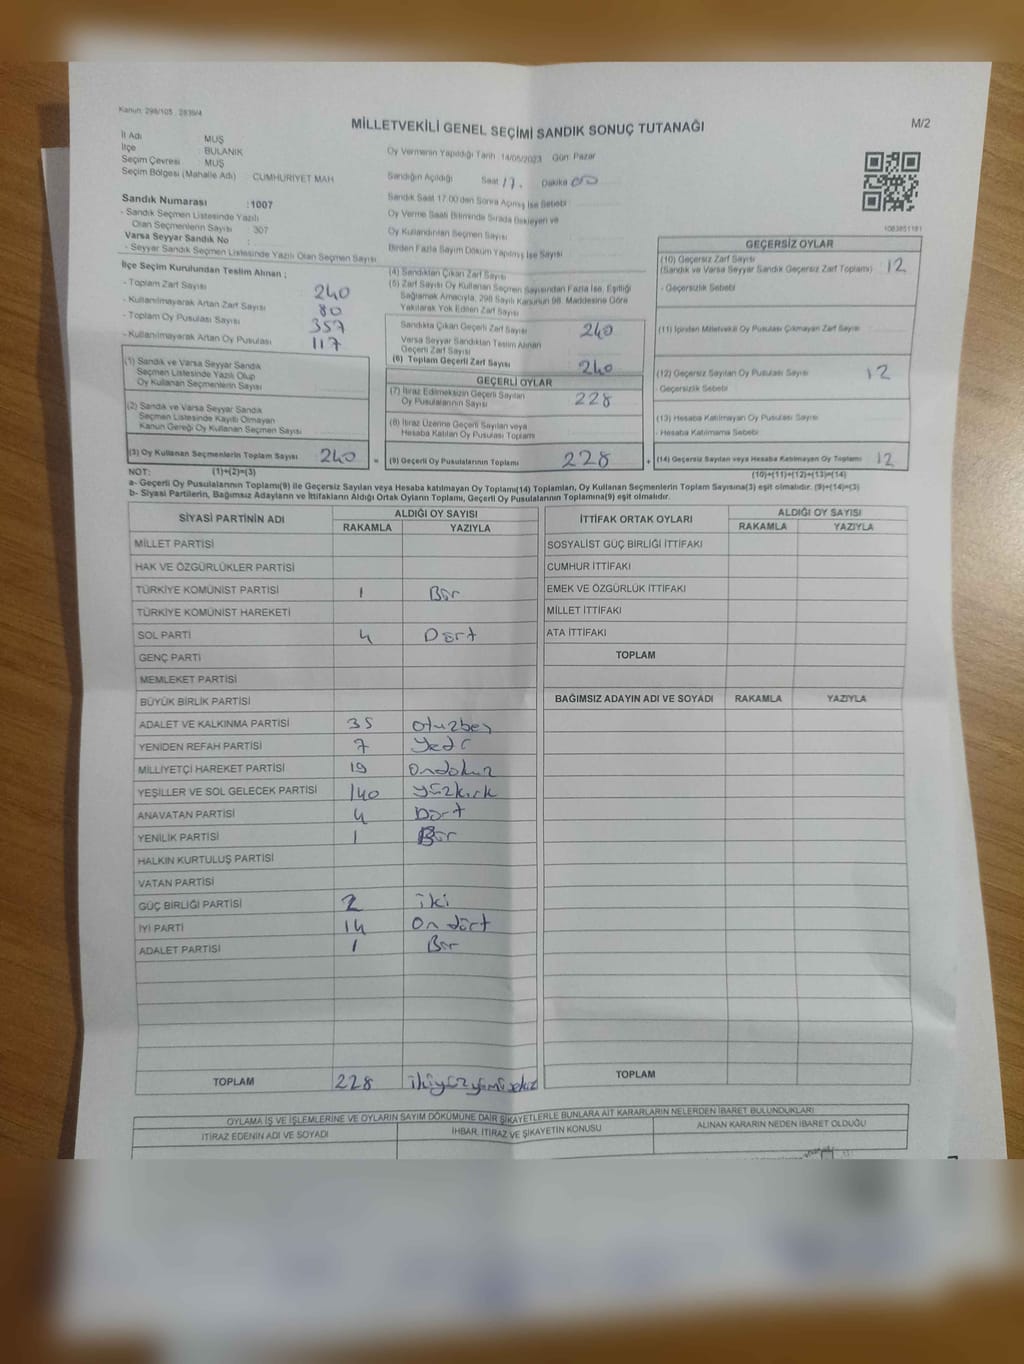 Kanun: 298/105 , 2839/4
MİLLETVEKİLİ GENEL SEÇİMİ SANDIK SONUÇ TUTANAĞI
M/2
İl Adı MUŞ
İlçe : BULANIK
Seçim Çevresi : MUŞ
Seçim Bölgesi (Mahalle Adı) CUMHURIYET MAH
Sandık Numarası :1007
- Sandık Seçmen Listesinde Yazılı
Olan Seçmenlerin Sayısı : 307
Varsa Seyyar Sandık No :
- Seyyar Sandık Seçmen Listesinde Yazılı Olan Seçmen Sayısı
İlçe Seçim Kurulundan Teslim Alınan ;
- Toplam Zarf Sayısı 240
- Kullanılmayarak Artan Zarf Sayısı 80
- Toplam Oy Pusulası Sayısı 357
- Kullanılmayarak Artan Oy Pusulası 117
(1) Sandık ve Varsa Seyyar Sandık
Seçmen Listesinde Yazılı Olup
Oy Kullanan Seçmenlerin Sayısı
(2) Sandık ve Varsa Seyyar Sandık
Seçmen Listesinde Kayıtlı Olmayan
Kanun Gereği Oy Kullanan Seçmen Sayısı
(3) Oy Kullanan Seçmenlerin Toplam Sayısı 240 =
Oy Vermenin Yapıldığı Tarih :14/05/2023 Gün: Pazar
Sandığın Açıldığı Saat 17. Dakika 00
Sandık Saat 17.00'den Sonra Açılmış İse Sebebi :
Oy Verme Saati Bitiminde Sırada Bekleyen ve
Oy Kullandırılan Seçmen Sayısı :
Birden Fazla Sayım Döküm Yapılmış İse Sayısı
(4) Sandıktan Çıkan Zarf Sayısı
(5) Zarf Sayısı Oy Kullanan Seçmen Sayısından Fazla İse, Eşitliği
Sağlamak Amacıyla, 298 Sayılı Kanunun 98. Maddesine Göre
Yakılarak Yok Edilen Zarf Sayısı
Sandıkta Çıkan Geçerli Zarf Sayısı 240
Varsa Seyyar Sandıktan Teslim Alınan
Geçerli Zarf Sayısı
(6) Toplam Geçerli Zarf Sayısı 240
GEÇERLİ OYLAR
(7) İtiraz Edilmeksizin Geçerli Sayılan
Oy Pusulalarının Sayısı 228
(8) İtiraz Üzerine Geçerli Sayılan veya
Hesaba Katılan Oy Pusulası Toplamı
(9) Geçerli Oy Pusulalarının Toplamı 228 +
1083851181
GEÇERSİZ OYLAR
(10) Geçersiz Zarf Sayısı
(Sandık ve Varsa Seyyar Sandık Geçersiz Zarf Toplamı) 12
- Geçersizlik Sebebi
(11) İçinden Milletvekili Oy Pusulası Çıkmayan Zarf Sayısı
(12) Geçersiz Sayılan Oy Pusulası Sayısı 12
- Geçersizlik Sebebi
(13) Hesaba Katılmayan Oy Pusulası Sayısı
- Hesaba Katılmama Sebebi
(14) Geçersiz Sayılan veya Hesaba Katılmayan Oy Toplamı 12
NOT: (1)+(2)=(3) (10)+(11)+(12)+(13)=(14)
a- Geçerli Oy Pusulalarının Toplamı(9) ile Geçersiz Sayılan veya Hesaba Katılmayan Oy Toplamı(14) Toplamları, Oy Kullanan Seçmenlerin Toplam Sayısına(3) eşit olmalıdır. (9)+(14)=(3)
b- Siyasi Partilerin, Bağımsız Adayların ve İttifakların Aldığı Ortak Oyların Toplamı, Geçerli Oy Pusulalarının Toplamına(9) eşit olmalıdır.
SİYASİ PARTİNİN ADI ALDIĞI OY SAYISI
RAKAMLA YAZIYLA
MİLLET PARTİSİ
HAK VE ÖZGÜRLÜKLER PARTİSİ
TÜRKİYE KOMÜNİST PARTİSİ 1 Bir
TÜRKİYE KOMÜNİST HAREKETİ
SOL PARTİ 4 Dört
GENÇ PARTİ
MEMLEKET PARTİSİ
BÜYÜK BİRLİK PARTİSİ
ADALET VE KALKINMA PARTİSİ 35 otuzbeş
YENİDEN REFAH PARTİSİ 7 Yedi
MİLLİYETÇİ HAREKET PARTİSİ 19 Ondokuz
YEŞİLLER VE SOL GELECEK PARTİSİ 140 yüzkırk
ANAVATAN PARTİSİ 4 Dört
YENİLİK PARTİSİ 1 Bir
HALKIN KURTULUŞ PARTİSİ
VATAN PARTİSİ
GÜÇ BİRLİĞİ PARTİSİ 2 iki
İYİ PARTİ 14 On dört
ADALET PARTİSİ 1 Bir
TOPLAM 228 ikiyüzyirmisekiz
İTTİFAK ORTAK OYLARI ALDIĞI OY SAYISI
RAKAMLA YAZIYLA
SOSYALİST GÜÇ BİRLİĞİ İTTİFAKI
CUMHUR İTTİFAKI
EMEK VE ÖZGÜRLÜK İTTİFAKI
MİLLET İTTİFAKI
ATA İTTİFAKI
TOPLAM
BAĞIMSIZ ADAYIN ADI VE SOYADI RAKAMLA YAZIYLA
TOPLAM
OYLAMA İŞ VE İŞLEMLERİNE VE OYLARIN SAYIM DÖKÜMÜNE DAİR ŞİKAYETLERLE BUNLARA AİT KARARLARIN NELERDEN İBARET BULUNDUKLARI
İTİRAZ EDENİN ADI VE SOYADI İHBAR, İTİRAZ VE ŞİKAYETİN KONUSU ALINAN KARARIN NEDEN İBARET OLDUĞU